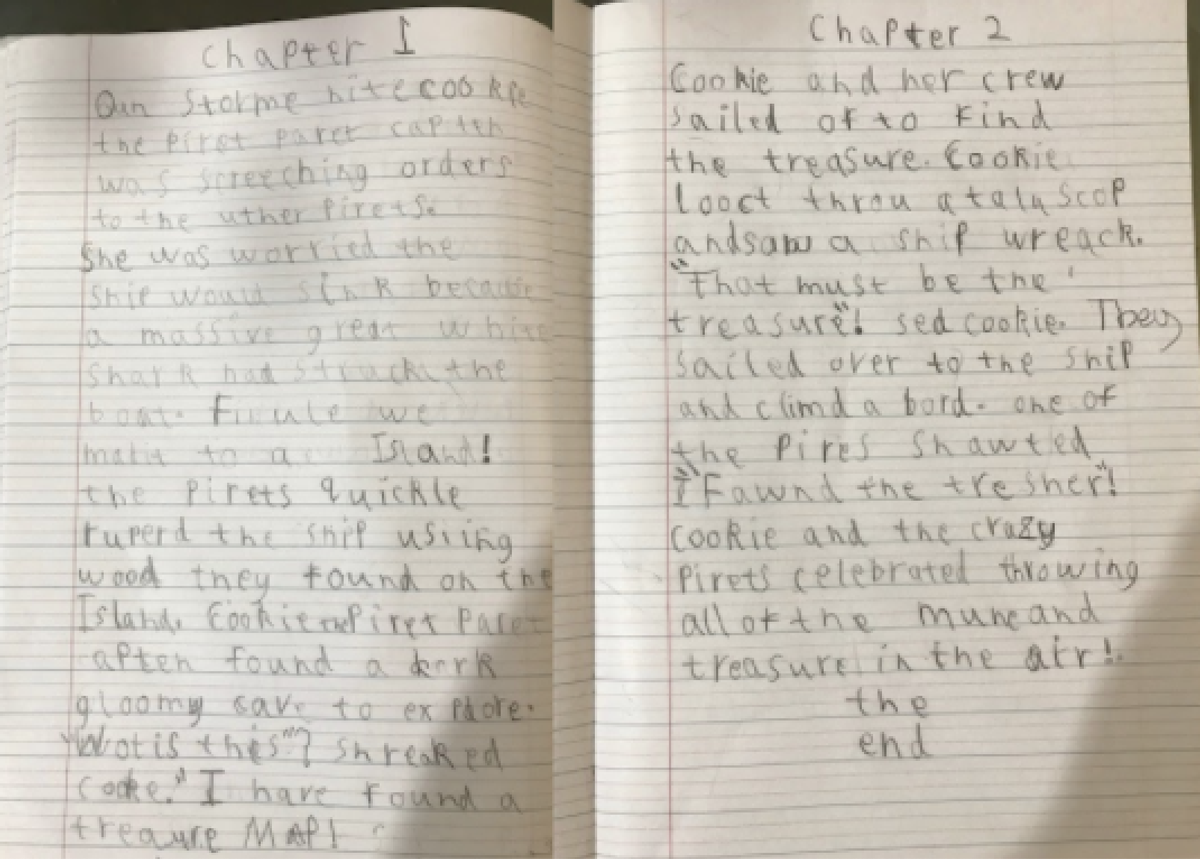 Chapter 1
Oun Storme nite cookie
the Piret Paret captin
was screeching orders
to the uther Pirets.
She was worried the
Ship would sink because
a massive great white
Shark had struck the
boat. Finule we
mait to a Island!
the Pirets quickle
ruperd the ship usiing
wood they found on the
Island. Cookie the Piret Paret
apten found a derk
gloomy cave to explore.
Wot is this"? Shreaked
Cooke." I have found a
treaure MAP!
Chapter 2
Cookie and her crew
sailed of to Find
the treasure. Cookie
looct throu a talu scop
and saw a ship wreack.
"That must be the
treasure"! sed cookie. They
sailed over to the ship
and climd a bord. one of
the Pires Shawted
"I Fawnd the tresher"!
Cookie and the crazy
Pirets celebrated throwing
all of the mune and
treasure in the air!.
the
end